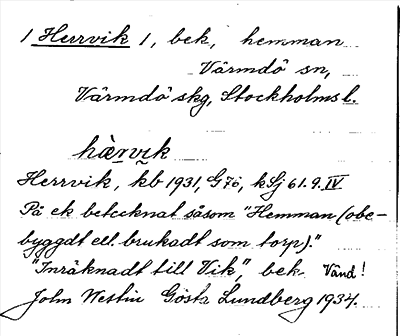 1 Herrvik 1, bek, hemman
Värmdö sn,
Värmdö skg, Stockholms l.
hærvik
Herrvik, kb 1931, G76, kSj 61.9.IV
På ek betecknat såsom "Hemman (obe-
byggdt ell brukadt som torp)."
"Inräknadt till Vik", bek. Vänd!
John Westin Gösta Lundberg 1934.